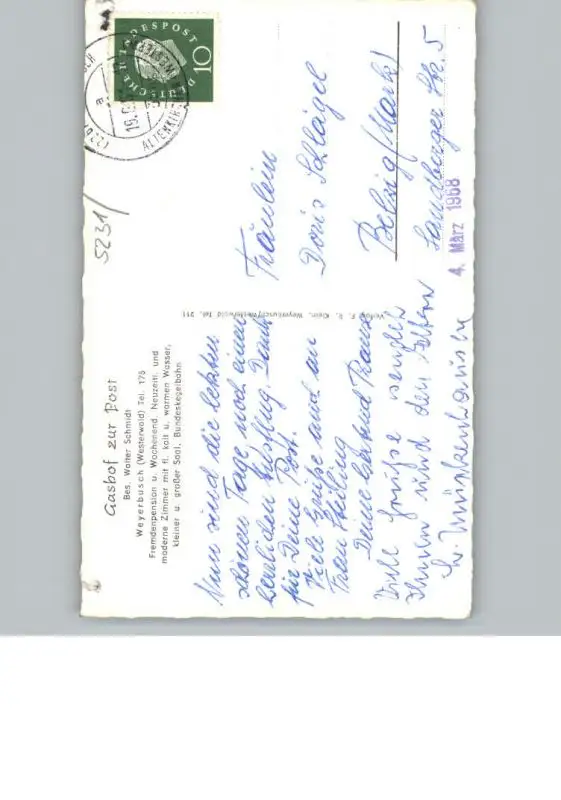 Gasthof zur Post
Bes. Walter Schmidt
Weyerbusch (Westerwald) Tel. 175
Fremdenpension u. Wochenend Neuzeitl. und
moderne Zimmer mit fl. kalt u. warmen Wasser,
kleiner u. großer Saal, Bundeskegelbahn
Nun sind die letzten
schönen Tage noch einen
herrlichen Ausflug. Dank
für Deine Post.
Viele Grüße auch an
Frau
Deine und
Viele Grüße
den Eltern
Verlag F. R. Klein, Weyerbusch/Westerwald Tel. 211
5231/
DEUTSCHE BUNDESPOST
10
ALTENKIRCHEN
Fräulein
Doris Schlägel
Belzig (Mark)
Sandberger Str. 5
4. März 1968